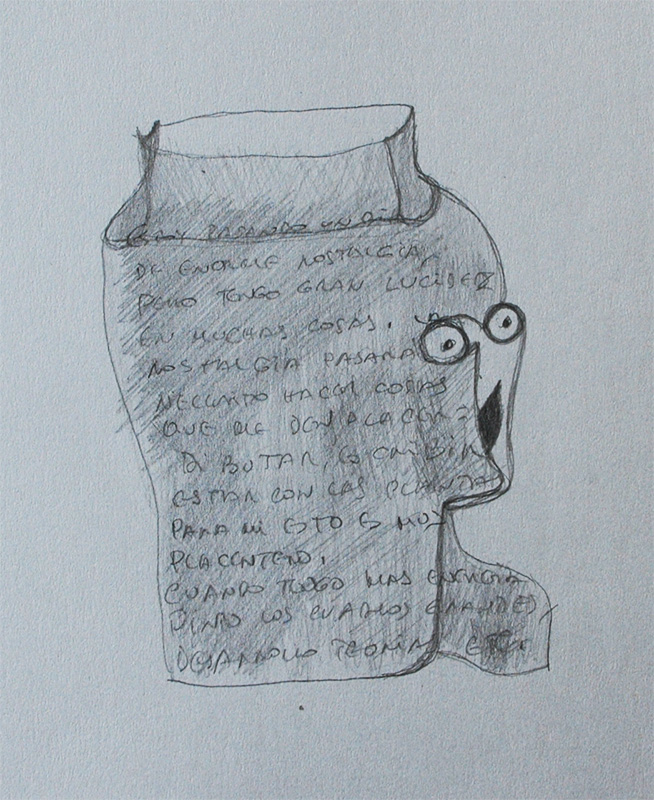 ESTOY PASANDO UN DIA
DE ENORME NOSTALGIA,
PERO TENGO GRAN LUCIDEZ
EN MUCHAS COSAS. LA
NOSTALGIA PASARA
NECESITO HACER COSAS
QUE ME DEN PLACER:
DIBUJAR, ESCRIBIR
ESTAR CON LAS PLANTAS
PARA MI ESTO ES MUY
PLACENTERO.
CUANDO TENGO MAS ENERGIA
PINTO LOS CUADROS GRANDES,
DESARROLLO TEORIAS ETC.